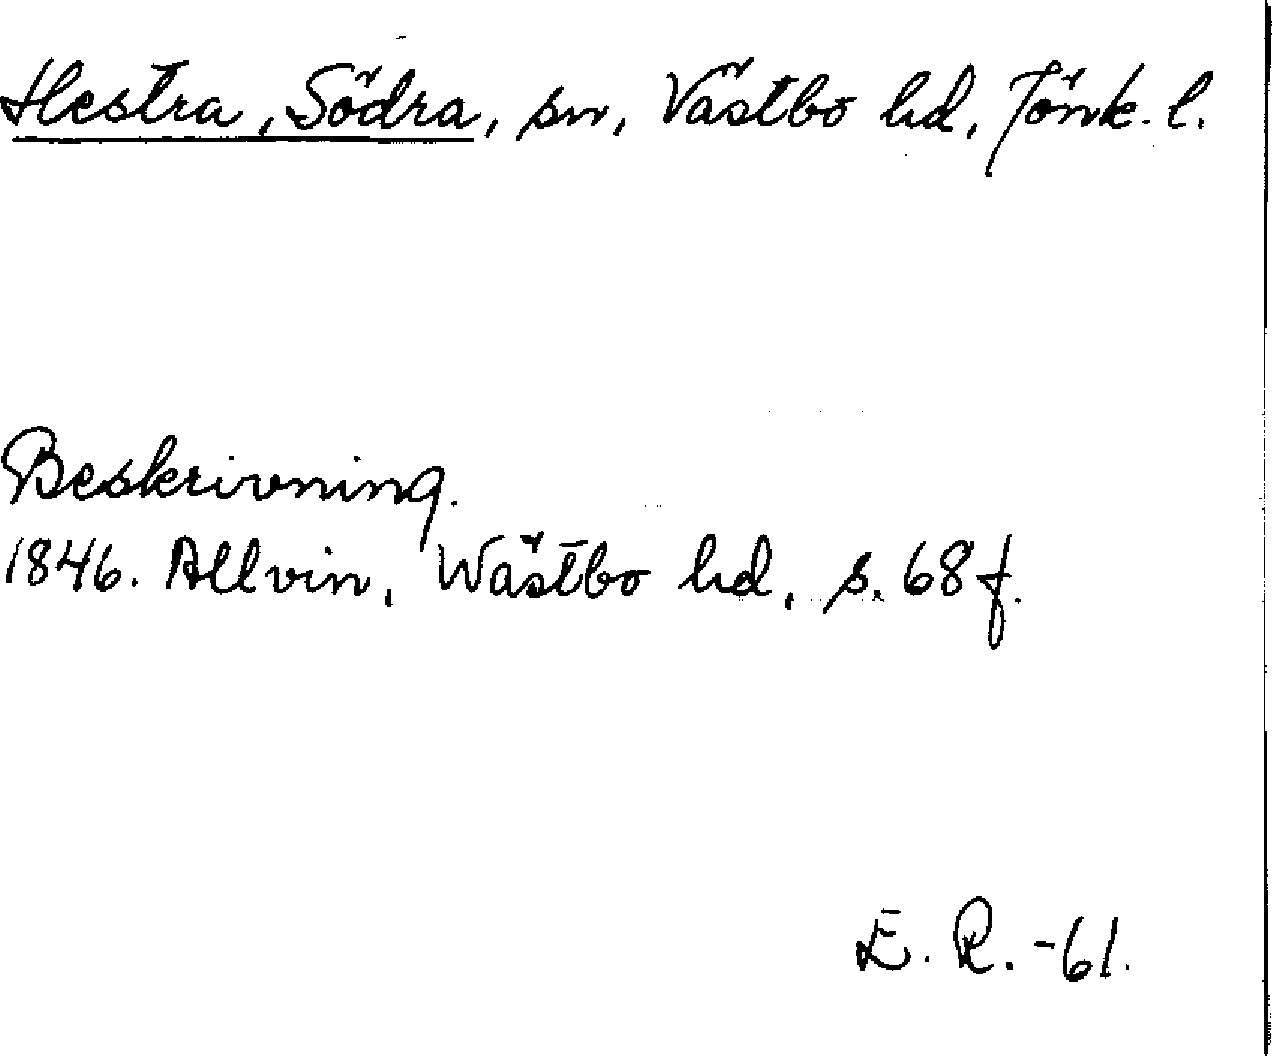 Hestra, Södra, sn, Västbo hd, Jönk. l.
Beskrivning.
1846. Allvin, Wästbo hd, s. 68 f.
E. R. -61.